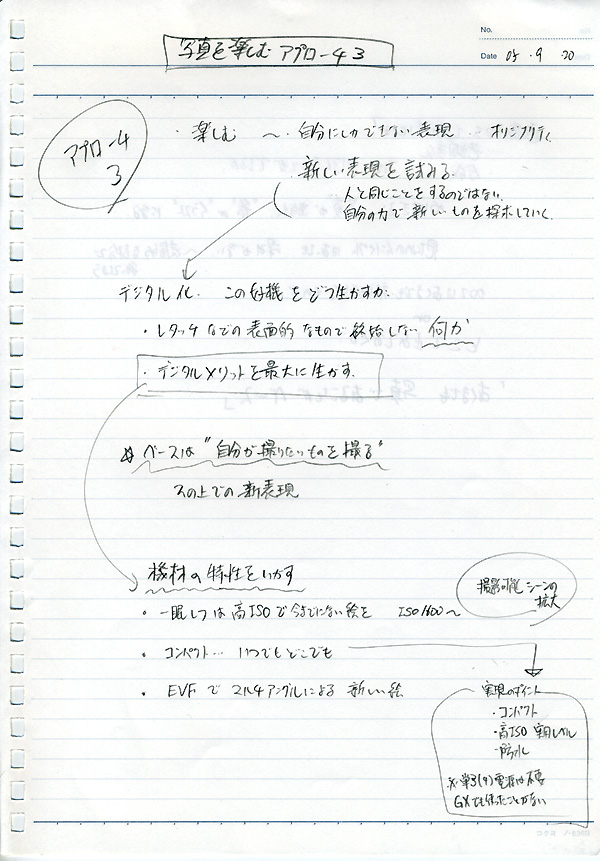 No.
Date 05・9・20
写真を楽しむ アプローチ3
アプローチ
3
・楽しむ 〜・自分にしかできない表現 オリジナリティ
・新しい表現を試みる
人と同じことをするのではない
自分の力で新しいものを探求していく。
デジタル化. この好機をどう生かすか.
・レタッチなどの表面的なもので終始しない何か
・デジタルメリットを最大に生かす.
☆ベースは"自分が撮りたいものを撮る"
その上での新表現
機材の特性をいかす
・一眼レフは高ISOで今までにない絵を ISO1600〜
撮影可能シーンの
拡大
・コンパクト… いつでもどこでも
・EVFでマルチアングルによる新しい絵
実現のポイント
・コンパクト
・高ISO 実用レベル
・防水
※単3(4)電源は不要
GXでも使ったことがない
コクヨ